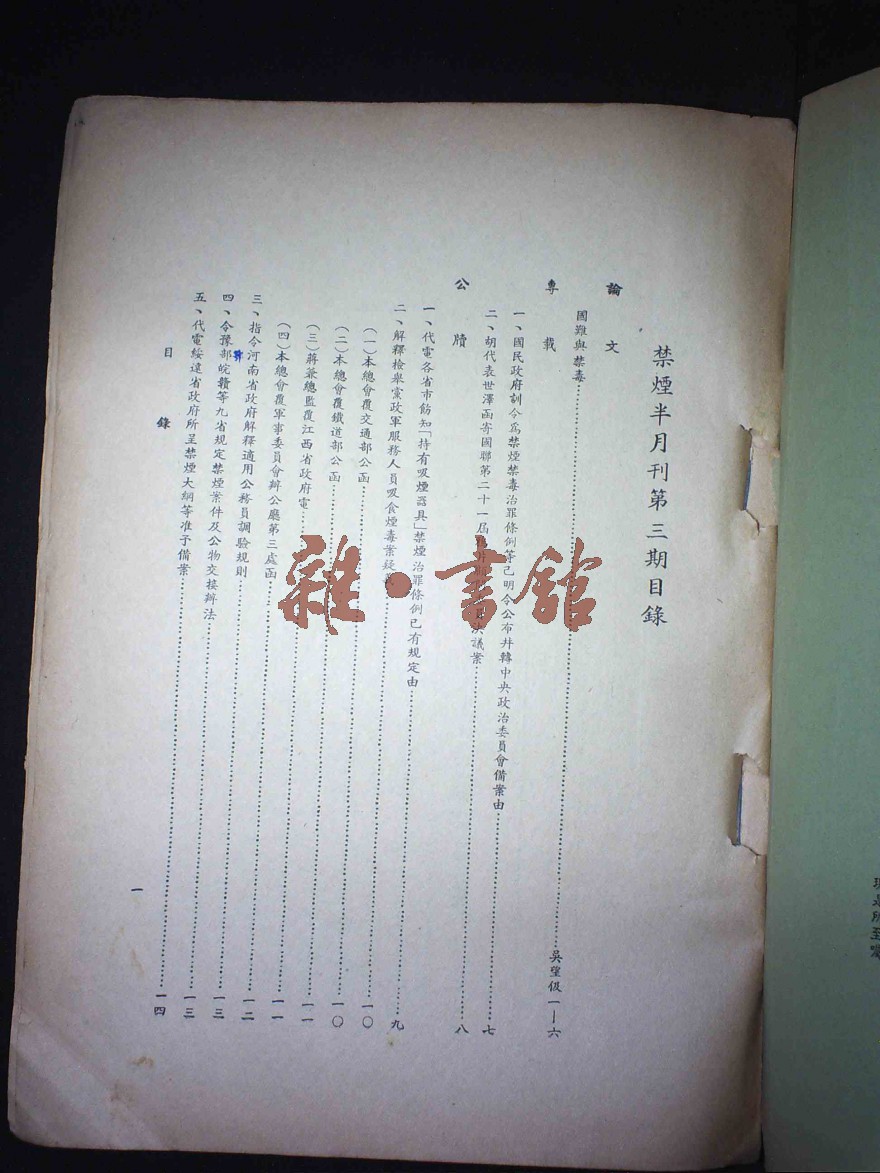 禁煙半月刊第三期目錄
論文
國難與禁毒 吳望伋 一—六
專載
一、國民政府訓令爲禁煙禁毒治罪條例等已明令公布幷轉中央政治委員會備案由 七
二、胡代表世澤函寄國聯第二十一屆 決議案 八
公牘
一、代電各省市飭知「持有吸煙器具」禁煙治罪條例已有規定由 九
二、解釋檢舉黨政軍服務人員吸食煙毒案疑
(一)本總會覆交通部公函 一〇
(二)本總會覆鐵道部公函 一〇
(三)蔣兼總監覆江西省政府電 一一
(四)本總會覆軍事委員會辦公廳第三處函 一一
三、指令河南省政府解釋適用公務員調驗規則 一二
四、令豫鄂皖贛等九省規定禁煙案件及公物交接辦法 一三
五、代電綏遠省政府所呈禁煙大綱等准予備案 一三
一四
目錄
一
雜·書館